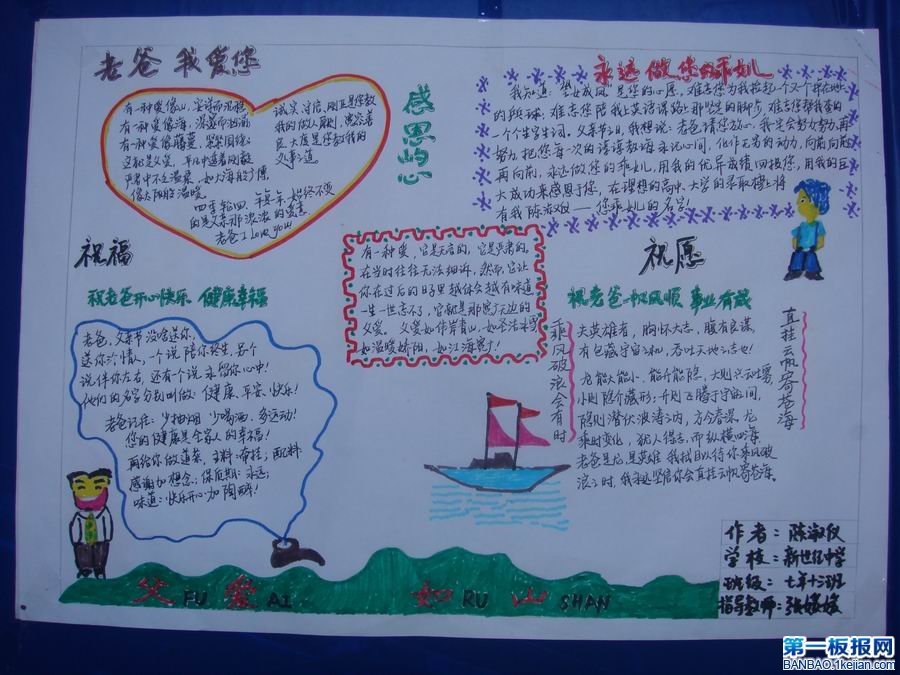 老爸 我爱您
有一种爱像山，坚译而沉稳
有一种爱像海，深邃而饱满
有一种爱像藤蔓，紧紧围绕
这就是父爱，平凡中透着刚毅
严肃中不乏温柔，如大海般广博，
像太阳般温暖
四季轮回，年复一年，始终不变
的是父亲那浓浓的爱意
老爸 I Love you
诚实，守信，刚正是您教
我的做人原则，宽容善
良，大度是您教我的
处事之道
感恩的心
永远做您的乖儿
我知道：望女成凤，是您的心愿，难忘您为我
的乒乓球，难忘您陪我上英语课路上那坚定的脚步，难忘您帮我拿的
一个个生字生词，父亲节之日，我想说：老爸请您放心，我定会努力努力再
努力，把您每一次的谆谆教诲永记心间，化作无尽的动力，向前向前
再向前，永远做您的乖儿，用我的优异成绩回报您，用我的巨
大成功来感恩于您，在理想的高中、大学的录取榜上将
有我陈淑仪——您乖儿的名字！
祝福
祝老爸开心快乐 健康幸福
老爸，父亲节没啥送你，
送你个情，一个说陪你终生，另个
说伴你左右，还有个说永留你心中！
他们的名字分别叫做：健康，平安，快乐！
老爸记住：少抽烟 少喝酒，多运动！
您的健康是全家人的幸福！
再给你做道菜，主料：牵挂，配料：
感谢加想念；保质期：永远；
味道：快乐开心加陶醉！
有一种爱，它是无言的，它是严肃的，
在当时往往无法细诉，然而，它让
你在过后的日子里越体会越有味道
一生一世忘不了，它就是那宽广无边的
父爱。父爱如伟岸青山，如
如温暖娇阳，如江海宽广！
祝愿
祝老爸一帆风顺 事业有成
乘风破浪会有时
直挂云帆寄苍海
夫英雄者，胸怀大志，腹有良谋，
有包藏宇宙之机，吞吐天地之志也！
龙能大能小，能升能隐，大则兴云吐雾，
小则隐介藏形；升则飞腾于宇宙间，
隐则潜伏浪涛之内，方今春深，龙
乘时变化，犹人得志，而纵横四海
老爸是龙，是英雄，我拭目以待你乘风破
浪之时，我永远坚信你会直挂云帆寄苍海。
作者：陈淑仪
学校：新世纪中学
班级：七年十二班
指导教师：张媛媛
父 FU 爱 AI 如 RU 山 SHAN
第一板报网
BANBAO.1kejian.com